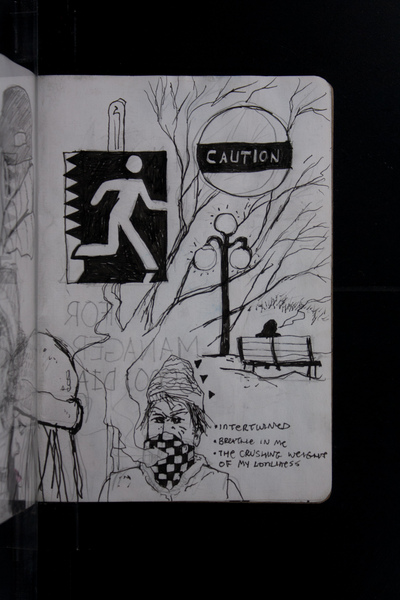 CAUTION
• INTERTWINED
• BREATHE IN ME
• THE CRUSHING WEIGHT
OF MY LONLINESS